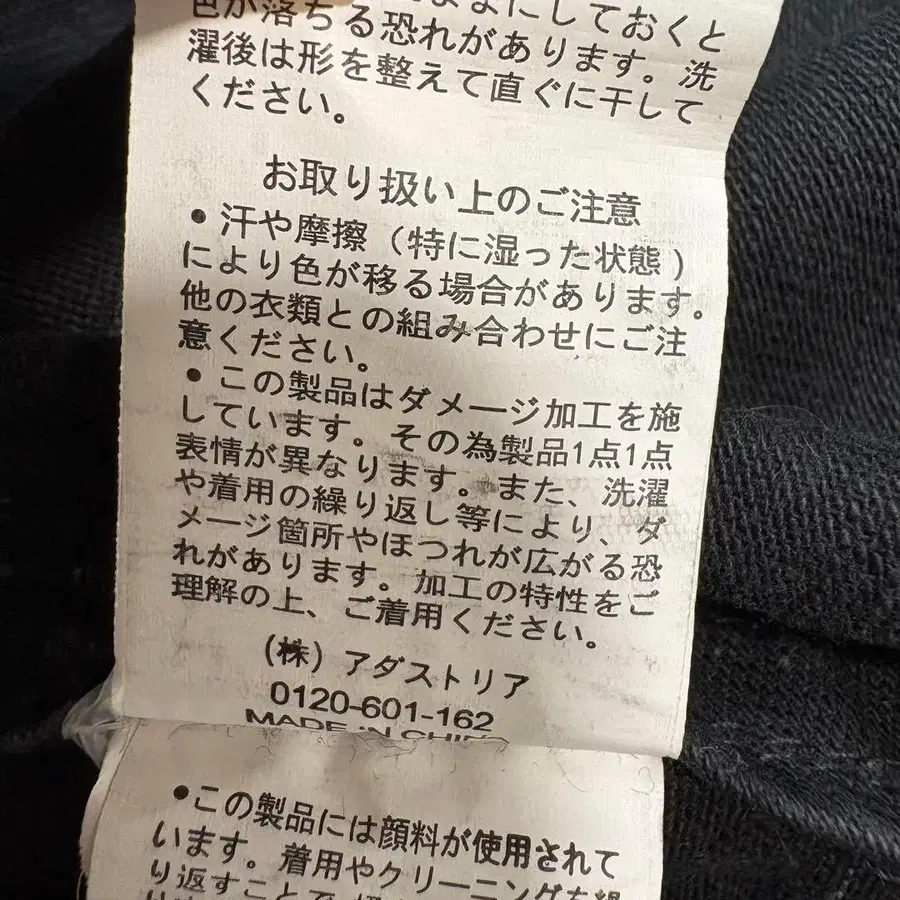 ままにしておくと
色が落ちる恐れがあります。洗
濯後は形を整えて直ぐに干して
ください。
お取り扱い上のご注意
● 汗や摩擦（特に湿った状態）
により色が移る場合があります。
他の衣類との組み合わせにご注
意ください。
● この製品はダメージ加工を施
しています。その為製品1点1点
表情が異なります。また、洗濯
や着用の繰り返し等により、ダ
メージ箇所やほつれが広がる恐
れがあります。加工の特性をご
理解の上、ご着用ください。
(株) アダストリア
0120-601-162
MADE IN CHINA
●この製品には顔料が使用されて
います。着用やクリーニングを繰
り返すことで